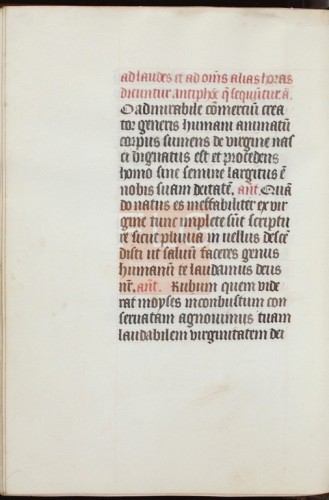 ad laudes et ad oms̄ alias horas
dicuntur antiphoē q̄ sequūtur a̅.
O admirabile cōmerciū crea
tor generis humani animatū
corpus sumens de virgine nas
ci dignatus est et procedens
homo sine semine largitus ē
nobis suam deitatē. an̄t. Quā
do natus es ineffabiliter ex vir
gine tunc implete sūt scriptu
re sicut pluvia in vellus descē
disti ut salvū faceres genus
humanū te laudamus deus
nr̄. an̄t. Rubum quem vide
rat moyses incombustum con
servatam agnovimus tuam
laudabilem virginitatem dei